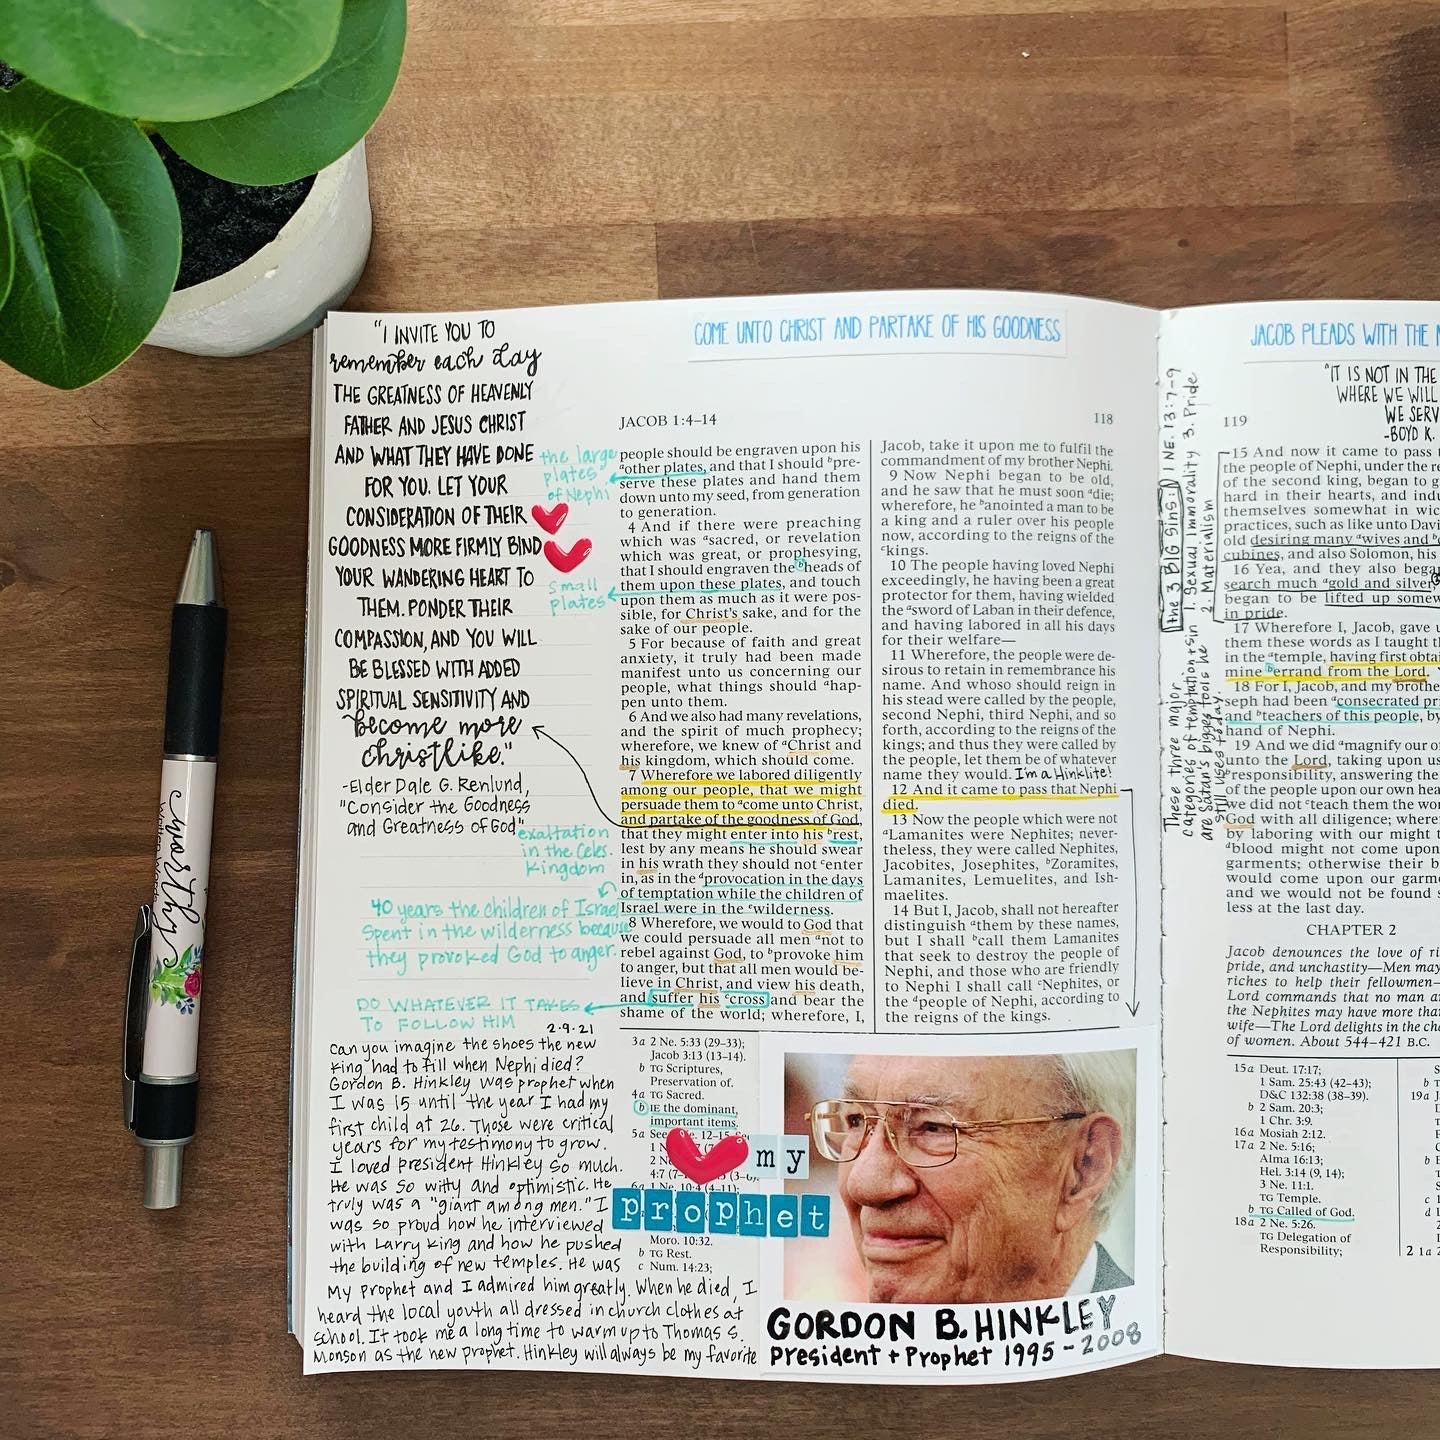 "I INVITE YOU TO
remember each day
THE GREATNESS OF HEAVENLY
FATHER AND JESUS CHRIST
AND WHAT THEY HAVE DONE
FOR YOU. LET YOUR
CONSIDERATION OF THEIR
GOODNESS MORE FIRMLY BIND
YOUR WANDERING HEART TO
THEM. PONDER THEIR
COMPASSION, AND YOU WILL
BE BLESSED WITH ADDED
SPIRITUAL SENSITIVITY AND
become more
christlike."
-Elder Dale G. Renlund,
"Consider the Goodness
and Greatness of God"
the large
plates
of Nephi
small
plates
exaltation
in the Celes.
Kingdom
40 years the children of Israel
spent in the wilderness because
they provoked God to anger.
DO WHATEVER IT TAKES
TO FOLLOW HIM
2.9.21
Can you imagine the shoes the new
king had to fill when Nephi died?
Gordon B. Hinkley was prophet when
I was 15 until the year I had my
first child at 26. Those were critical
years for my testimony to grow.
I loved president Hinkley so much.
He was so witty and optimistic. He
truly was a "giant among men." I
was so proud how he interviewed
with Larry King and how he pushed
the building of new temples. He was
My prophet and I admired him greatly. When he died, I
heard the local youth all dressed in church clothes at
school. It took me a long time to warm up to Thomas S.
Monson as the new prophet. Hinkley will always be my favorite
COME UNTO CHRIST AND PARTAKE OF HIS GOODNESS
JACOB 1:4–14
118
people should be engraven upon his
aother plates, and that I should bpre-
serve these plates and hand them
down unto my seed, from generation
to generation.
4 And if there were preaching
which was asacred, or revelation
which was great, or prophesying,
that I should engraven the bheads of
them upon these plates, and touch
upon them as much as it were pos-
sible, for Christ's sake, and for the
sake of our people.
5 For because of faith and great
anxiety, it truly had been made
manifest unto us concerning our
people, what things should ahap-
pen unto them.
6 And we also had many revelations,
and the spirit of much prophecy;
wherefore, we knew of aChrist and
his kingdom, which should come.
7 Wherefore we labored diligently
among our people, that we might
persuade them to acome unto Christ,
and partake of the goodness of God,
that they might enter into his brest,
lest by any means he should swear
in his wrath they should not center
in, as in the dprovocation in the days
of temptation while the children of
Israel were in the ewilderness.
8 Wherefore, we would to God that
we could persuade all men anot to
rebel against God, to bprovoke him
to anger, but that all men would be-
lieve in Christ, and view his death,
and suffer his ccross and bear the
shame of the world; wherefore, I,
Jacob, take it upon me to fulfil the
commandment of my brother Nephi.
9 Now Nephi began to be old,
and he saw that he must soon adie;
wherefore, he banointed a man to be
a king and a ruler over his people
now, according to the reigns of the
ckings.
10 The people having loved Nephi
exceedingly, he having been a great
protector for them, having wielded
the asword of Laban in their defence,
and having labored in all his days
for their welfare—
11 Wherefore, the people were de-
sirous to retain in remembrance his
name. And whoso should reign in
his stead were called by the people,
second Nephi, third Nephi, and so
forth, according to the reigns of the
kings; and thus they were called by
the people, let them be of whatever
name they would. I'm a Hinklite!
12 And it came to pass that Nephi
died.
13 Now the people which were not
aLamanites were Nephites; never-
theless, they were called Nephites,
Jacobites, Josephites, bZoramites,
Lamanites, Lemuelites, and Ish-
maelites.
14 But I, Jacob, shall not hereafter
distinguish athem by these names,
but I shall bcall them Lamanites
that seek to destroy the people of
Nephi, and those who are friendly
to Nephi I shall call cNephites, or
the dpeople of Nephi, according to
the reigns of the kings.
3a 2 Ne. 5:33 (29–33);
Jacob 3:13 (13–14).
b TG Scriptures,
Preservation of.
4a TG Sacred.
b IE the dominant,
important items.
5a
Moro. 10:32.
b TG Rest.
c Num. 14:23;
my
prophet
GORDON B. HINKLEY
President + Prophet 1995 - 2008
the 3 BIG Sins: 1 NE. 13:7-9
1. Sexual Immorality 3. Pride
2. Materialism
These three major
categories of temptation + sin
are satan's biggest tools he
still uses today.
JACOB PLEADS WITH THE
"IT IS NOT IN THE
WHERE WE WILL
WE SERV
-BOYD K.
119
15 And now it came to pass
the people of Nephi, under the re
of the second king, began to g
hard in their hearts, and indu
themselves somewhat in wic
practices, such as like unto Davi
old desiring many awives and
cubines, and also Solomon, his
16 Yea, and they also began
search much agold and silver
began to be lifted up somew
in pride.
17 Wherefore I, Jacob, gave u
them these words as I taught th
in the atemple, having first obtai
mine berrand from the Lord.
18 For I, Jacob, and my brothe
seph had been aconsecrated pri
and bteachers of this people, by
hand of Nephi.
19 And we did amagnify our o
unto the Lord, taking upon us
bresponsibility, answering the
of the people upon our own hea
we did not cteach them the wo
God with all diligence; where
by laboring with our might t
dblood might not come upon
garments; otherwise their b
would come upon our garme
and we would not be found s
less at the last day.
CHAPTER 2
Jacob denounces the love of ri
pride, and unchastity—Men may
riches to help their fellowmen—
Lord commands that no man a
the Nephites may have more tha
wife—The Lord delights in the cha
of women. About 544–421 B.C.
15a Deut. 17:17;
1 Sam. 25:43 (42–43);
D&C 132:38 (38–39).
b 2 Sam. 20:3;
1 Chr. 3:9.
16a Mosiah 2:12.
17a 2 Ne. 5:16;
Alma 16:13;
Hel. 3:14 (9, 14);
3 Ne. 11:1.
TG Temple.
b TG Called of God.
18a 2 Ne. 5:26.
TG Delegation of
Responsibility;
19a
worthy